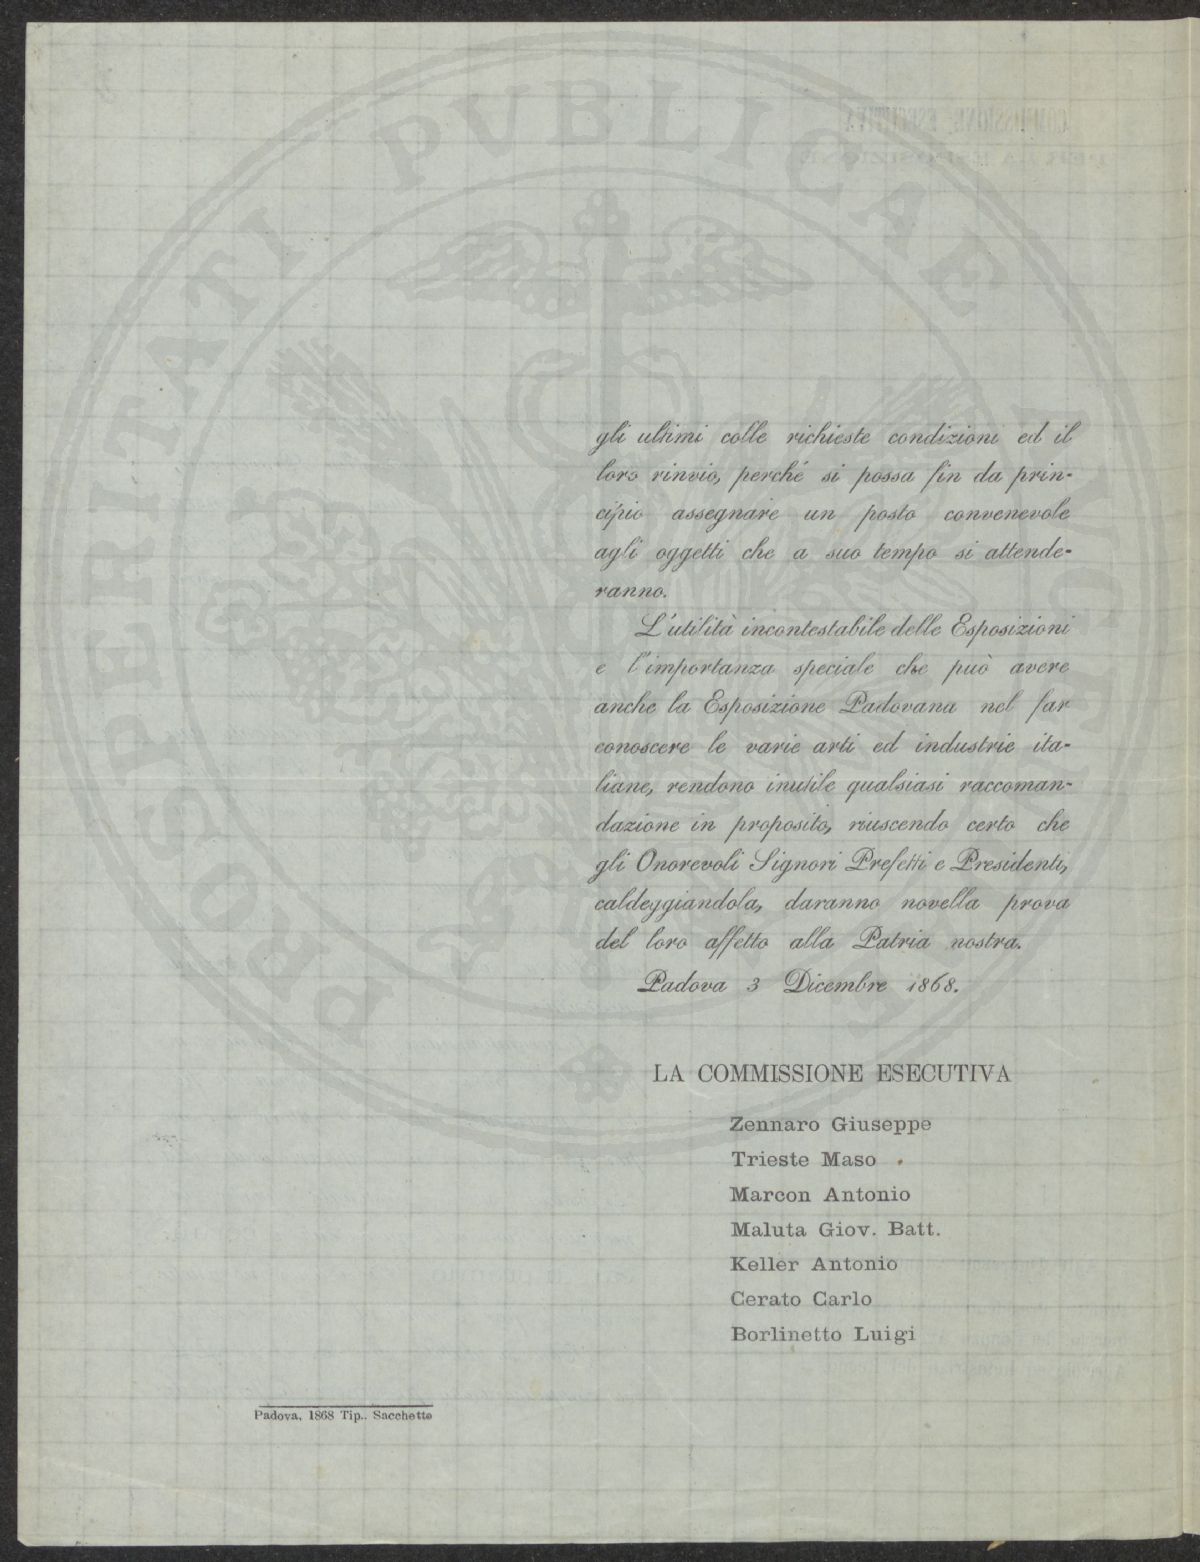 gli ultimi colle richieste condizioni ed il
loro rinvio, perché si possa fin da prin-
cipio assegnare un posto convenevole
agli oggetti che a suo tempo si attende-
ranno.
L'utilità incontestabile delle Esposizioni
e l'importanza speciale che può avere
anche la Esposizione Padovana nel far
conoscere le varie arti ed industrie ita-
liane, rendono inutile qualsiasi raccoman-
dazione in proposito, riuscendo certo che
gli Onorevoli Signori Prefetti e Presidenti,
caldeggiandola, daranno novella prova
del loro affetto alla Patria nostra.
Padova 3 Dicembre 1868.
LA COMMISSIONE ESECUTIVA
Zennaro Giuseppe
Trieste Maso
Marcon Antonio
Maluta Giov. Batt.
Keller Antonio
Cerato Carlo
Borlinetto Luigi
Padova, 1868 Tip.. Sacchetto
PROSPERITATI PUBLICAE AUGENDAE
COMMISSIONE ESECUTIVA
PER LA ESPOSIZIONE